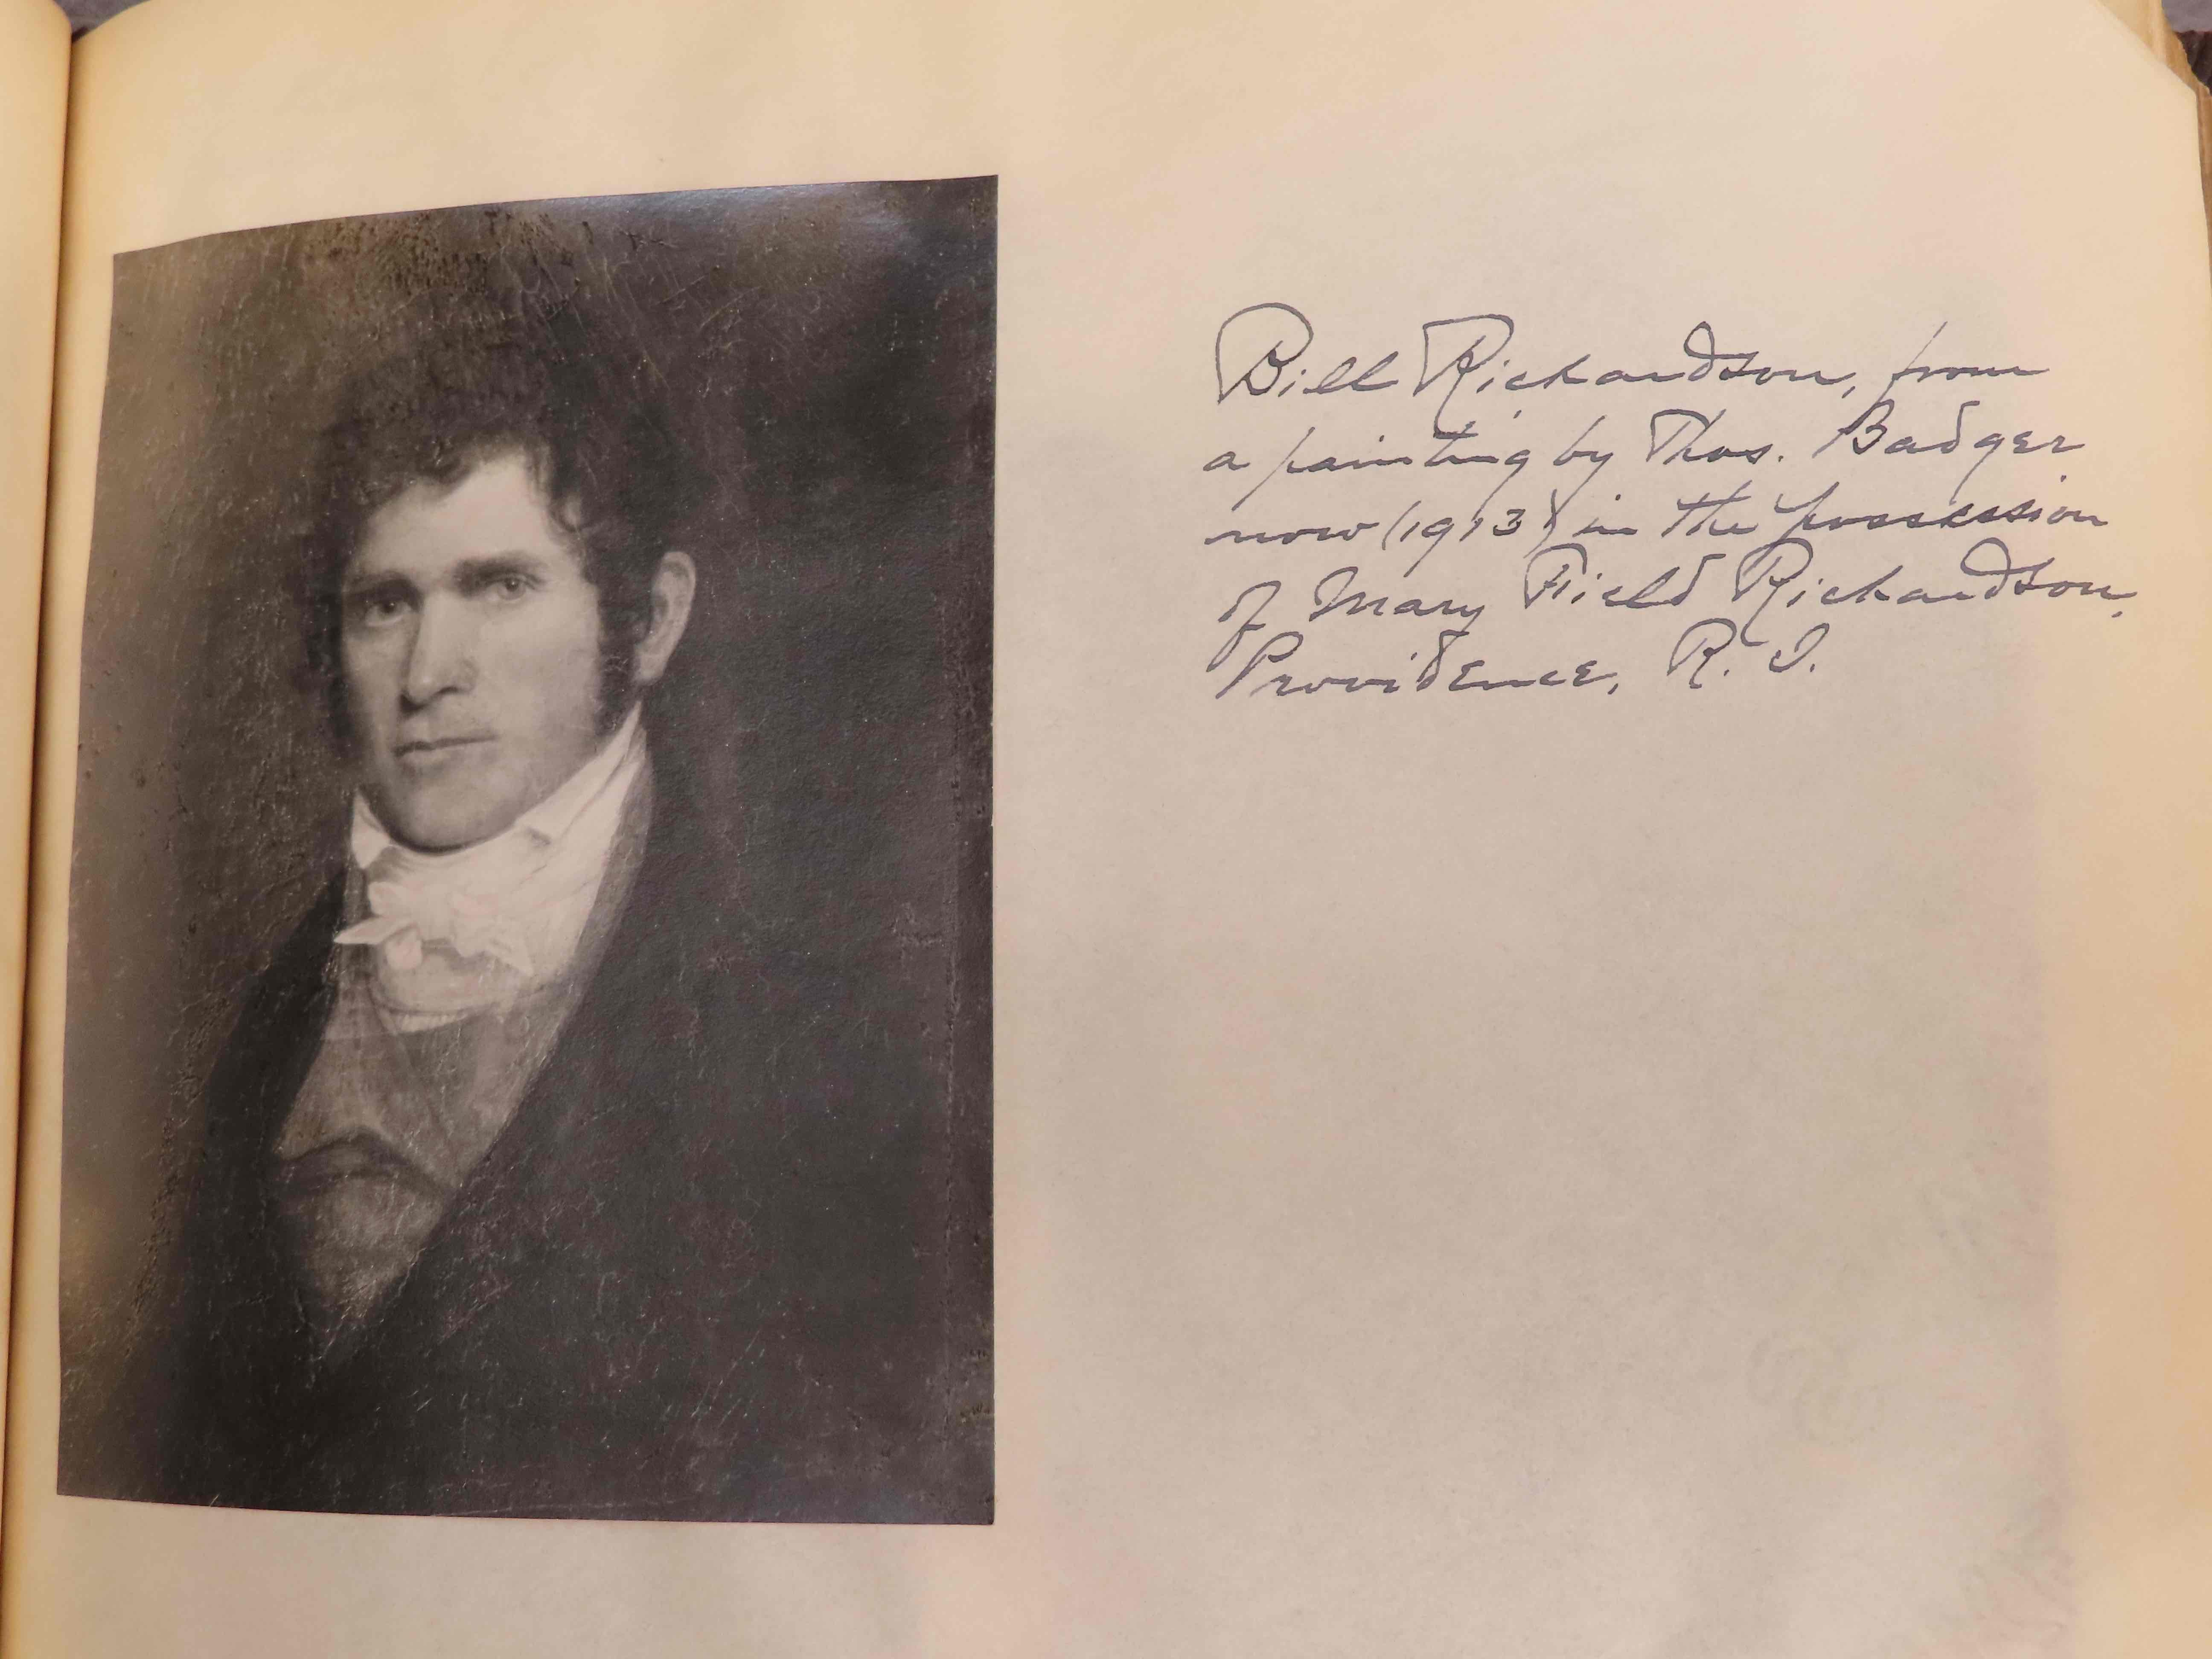 Bill Richardson, from
a painting by Thos. Badger
now (1913) in the possession
of Mary Field Richardson,
Providence, R. I.